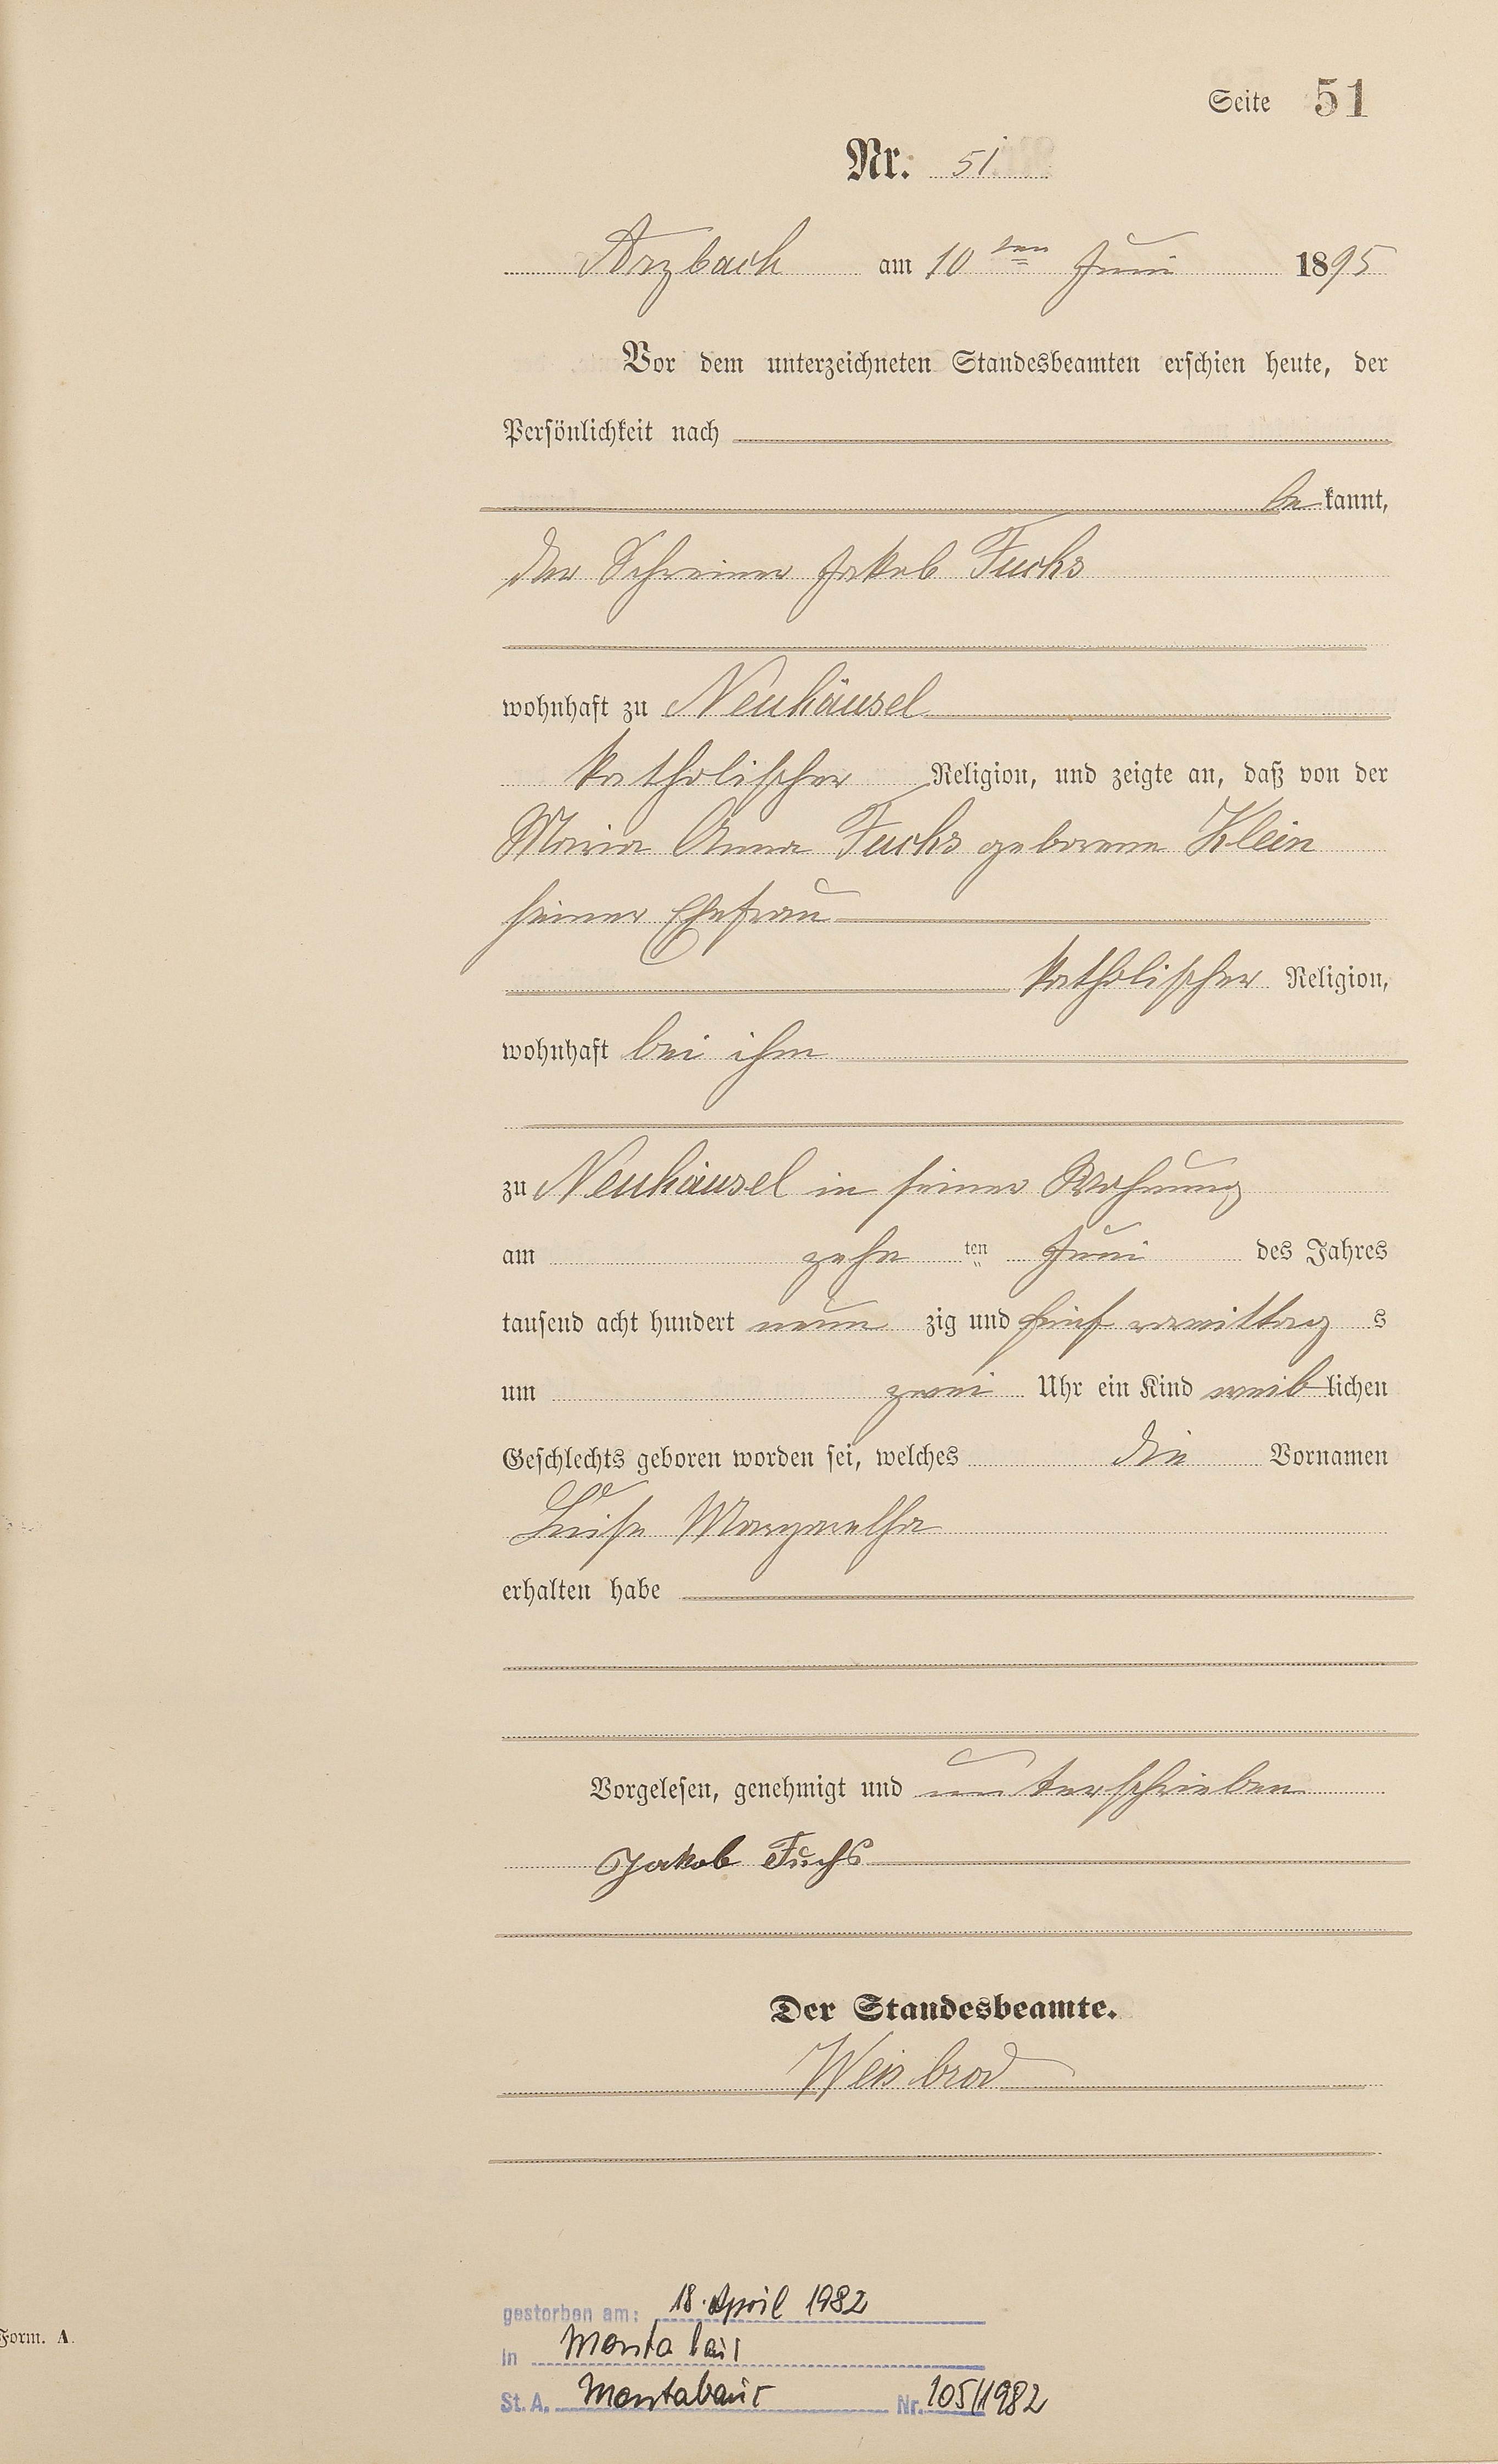 Seite 51
Nr. 51
Arzbach am 10ten Juni 1895
Vor dem unterzeichneten Standesbeamten erschien heute, der
Persönlichkeit nach
bekannt,
der Schreiner Jakob Fuchs
wohnhaft zu Neuhäusel
katholischer Religion, und zeigte an, daß von der
Maria Anna Fuchs geborene Klein
seiner Ehefrau
katholischer Religion,
wohnhaft bei ihm
zu Neuhäusel in seiner Wohnung
am zehn ten Juni des Jahres
tausend acht hundert neun zig und fünf vormittag s
um zwei Uhr ein Kind weiblichen
Geschlechts geboren worden sei, welches die Vornamen
Luise Margaretha
erhalten habe
Vorgelesen, genehmigt und unterschrieben
Jakob Fuchs
Der Standesbeamte.
Weisbrod
gestorben am: 18. April 1982
Form. A.
in Montabaur
St. A. Montabaur Nr. 105/1982